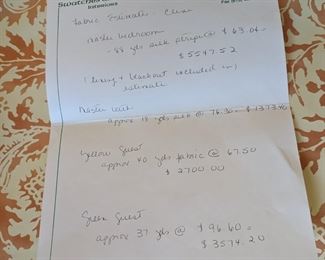 Swatches
Interiors
Fabric Estimate -
master bedroom
- 88 yds silk stripe @ $ 63.04 =
$ 5547.52
( lining + blackout included in )
estimate
Master
approx 18 yds silk @ 76.30 = $1373.40
Yellow Guest
approx 40 yds fabric @ 67.50
$ 2700.00
Green Guest
approx 37 yds @ $96.60 =
$ 3574.20